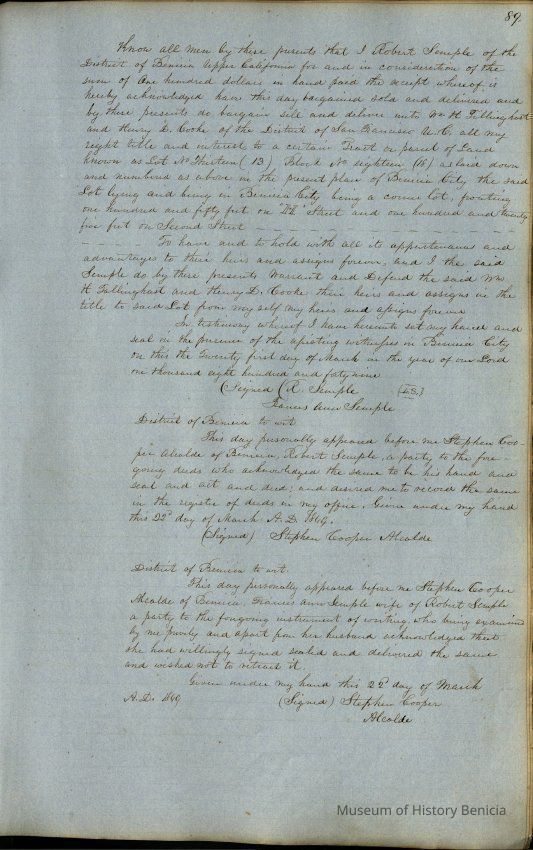 89
Know all men by these presents that I Robert Semple of the
District of Benicia Upper California for and in consideration of the
sum of One hundred dollars in hand paid the receipt whereof is
hereby acknowledged have this day bargained sold and delivered and
by these presents do bargain sell and deliver unto Wm H Tillinghast
and Henry D. Cooke of the District of San Francisco U.C. all my
right title and interest to a certain Tract or parcel of Land
known as Lot No Thirteen (13) Block No eighteen (18) as laid down
and numbered as above in the present plan of Benicia City the said
Lot lying and being in Benicia City being a corner lot, fronting
one hundred and fifty feet on "H" Street and one hundred and twenty
five feet on Second Street
To have and to hold with all its appurtenances and
advantages to their heirs and assigns forever, and I the said
Semple do by these presents Warrant and Defend the said Wm
H Tillinghast and Henry D. Cooke their heirs and assigns in the
title to said Lot from my self my heirs and assigns forever
In testimony whereof I have hereunto set my hand and
seal in the presence of the attesting witnesses in Benicia City
on this the twenty first day of March in the year of our Lord
one thousand eight hundred and forty nine
(Signed (R. Semple {L.S.}
Frances Ann Semple
District of Benicia to wit
This day personally appeared before me Stephen Coo-
per Alcalde of Benicia, Robert Semple, a party to the fore
going deeds who acknowledged the same to be his hand and
seal and act and deed; and desired me to record the same
in the register of deeds in my office. Given under my hand
this 22d day of March A.D. 1849.
(Signed) Stephen Cooper Alcalde
District of Benicia to wit.
This day personally appeared before me Stephen Cooper
Alcalde of Benicia, Frances Ann Semple wife of Robert Semple
a party to the foregoing instrument of writing, who being examined
by me privily and apart from her husband acknowledged that
she had willingly signed sealed and delivered the same
and wished not to retract it.
Given under my hand this 22d day of March
A.D. 1849 (Signed) Stephen Cooper
Alcalde
Museum of History Benicia